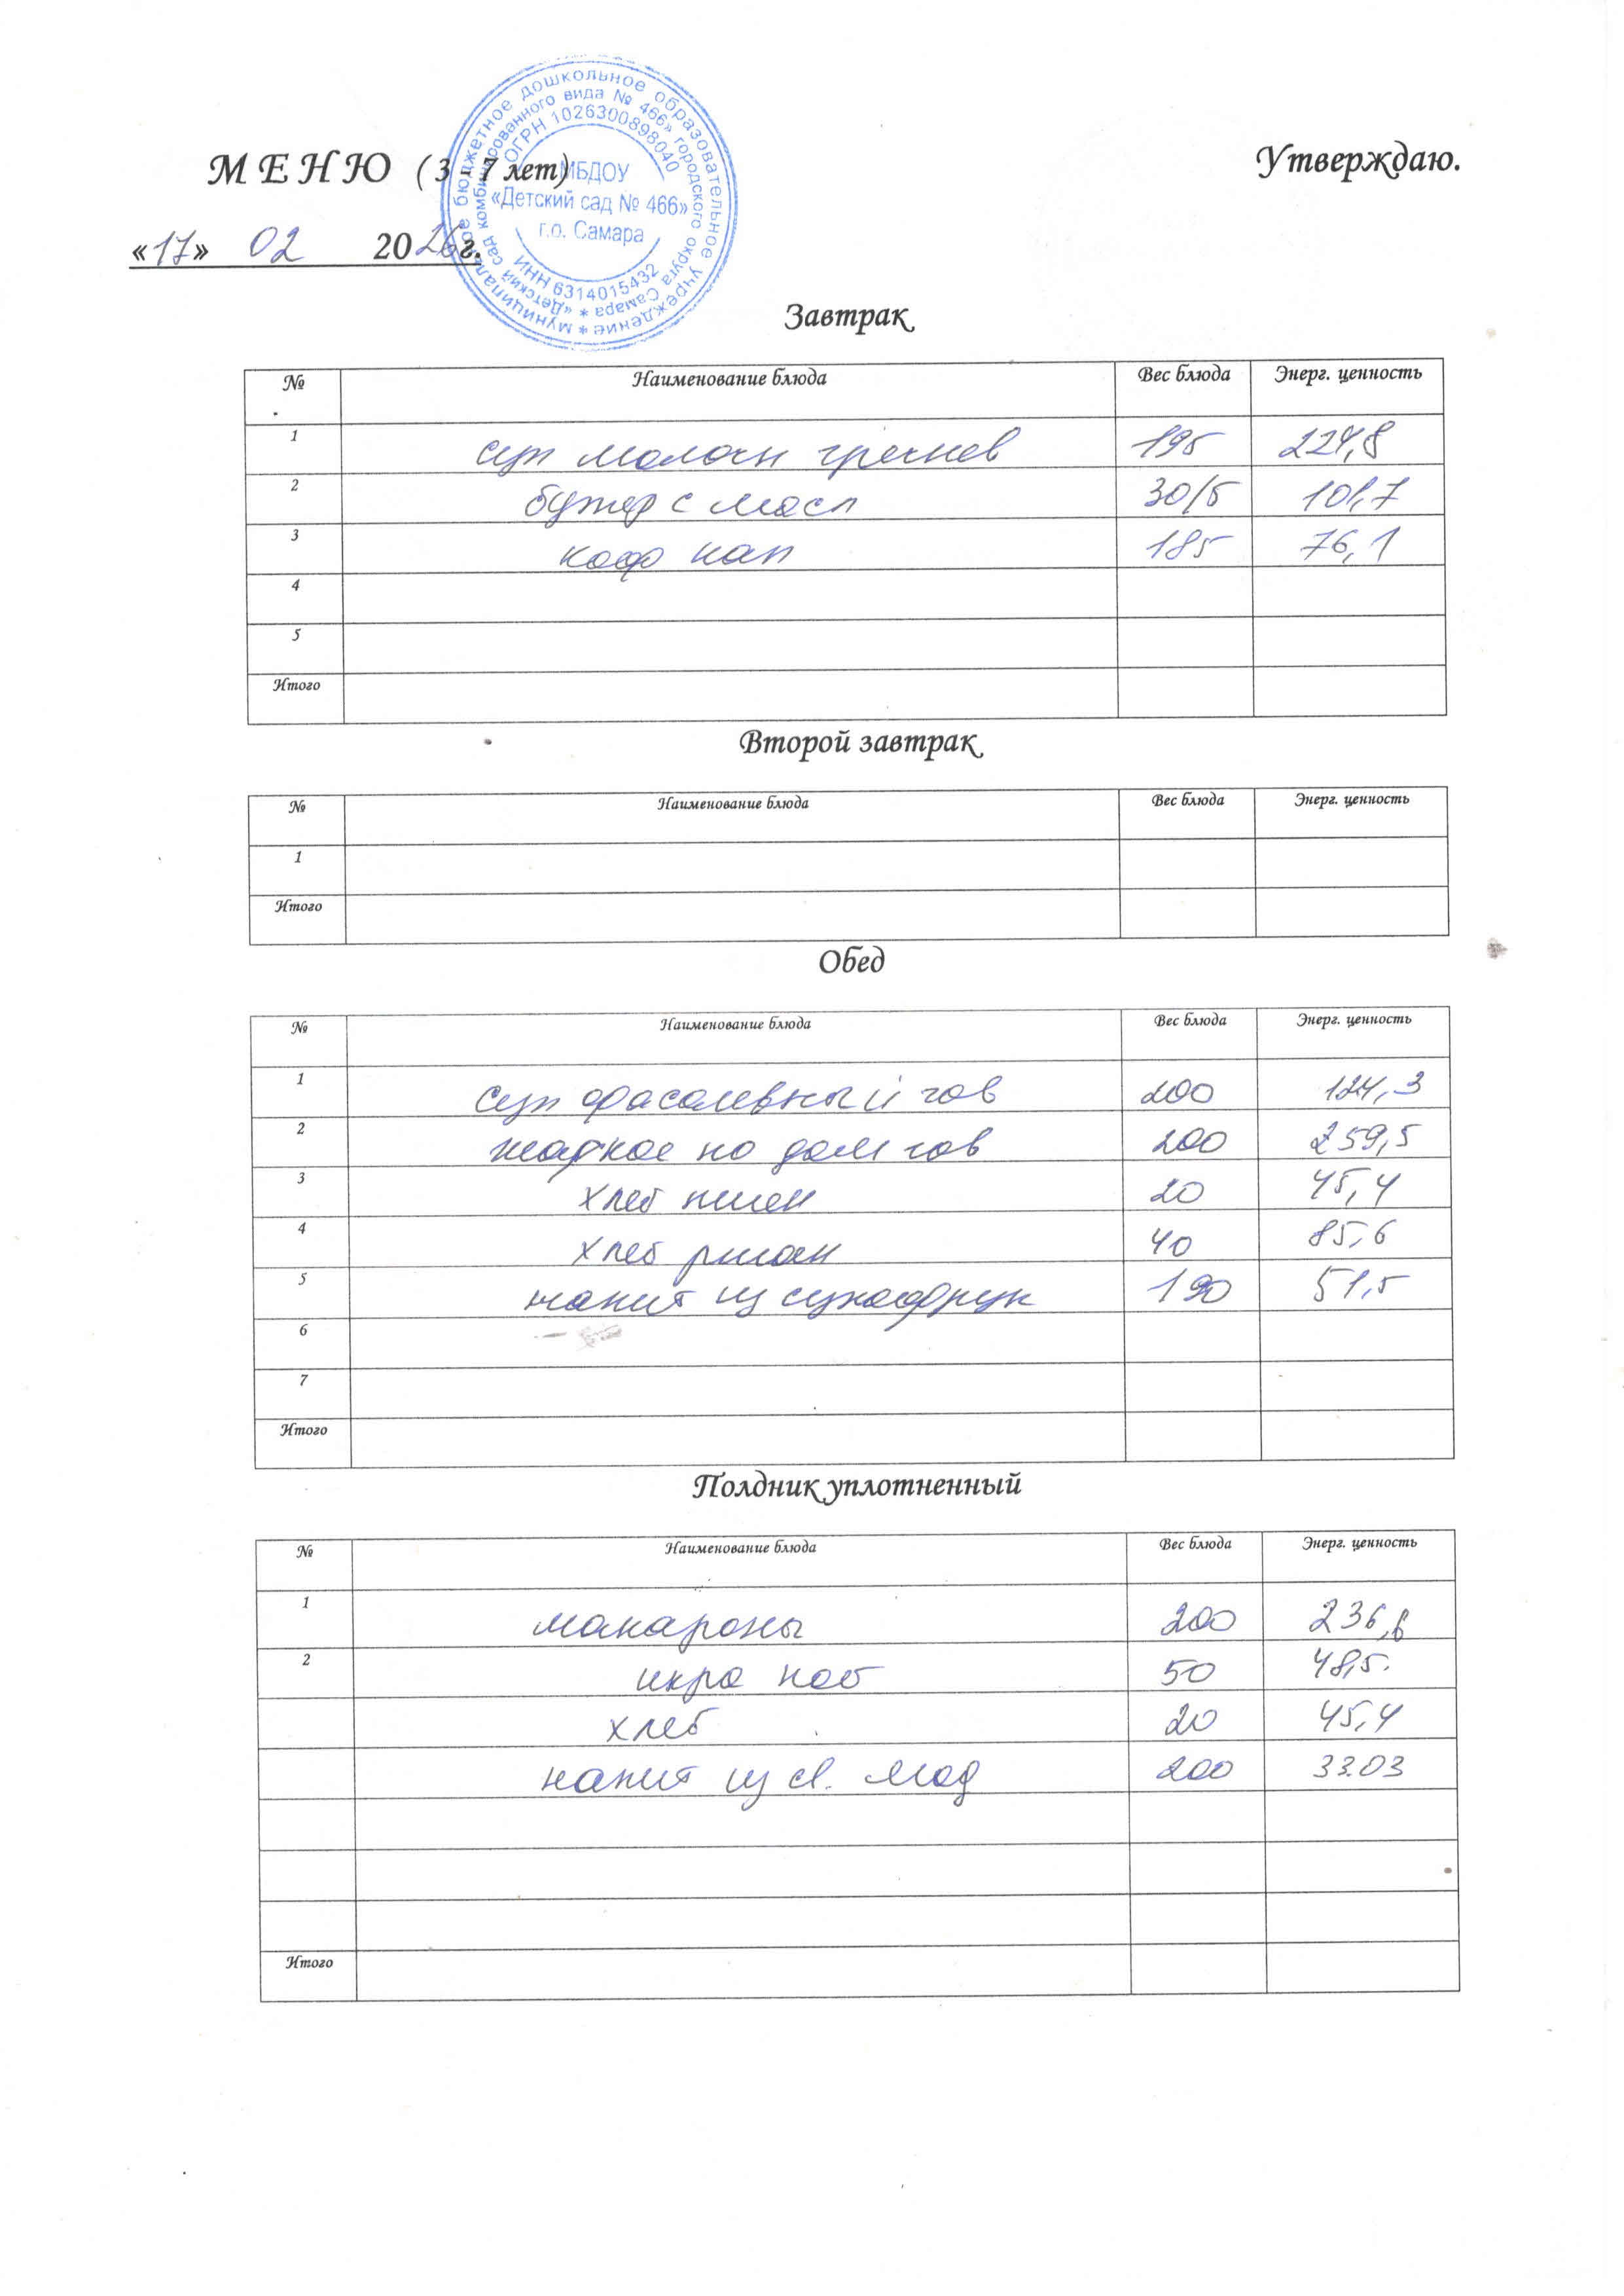 МЕНЮ (3 - 7 лет)
Утверждаю.
«17» 02 2026г.
муниципальное бюджетное дошкольное образовательное учреждение *
«Детский сад комбинированного вида № 466» городского округа Самара *
ОГРН 1026300898040
МБДОУ
«Детский сад № 466»
г.о. Самара
ИНН 6314015432
Завтрак
№ Наименование блюда Вес блюда Энерг. ценность
1 суп молочн гречнев 195 224,8
2 бутер с масл 30/5 101,7
3 коф нап 185 76,1
4
5
Итого
Второй завтрак
№ Наименование блюда Вес блюда Энерг. ценность
1
Итого
Обед
№ Наименование блюда Вес блюда Энерг. ценность
1 суп фасолевный гов 200 124,3
2 жаркое по дом гов 200 259,5
3 хлеб пшен 20 45,4
4 хлеб ржан 40 85,6
5 напит из сухофрук 190 51,5
6
7
Итого
Полдник уплотненный
№ Наименование блюда Вес блюда Энерг. ценность
1 макароны 200 236,6
2 икра каб 50 48,5.
хлеб 20 45,4
напит из 200 33.03
Итого